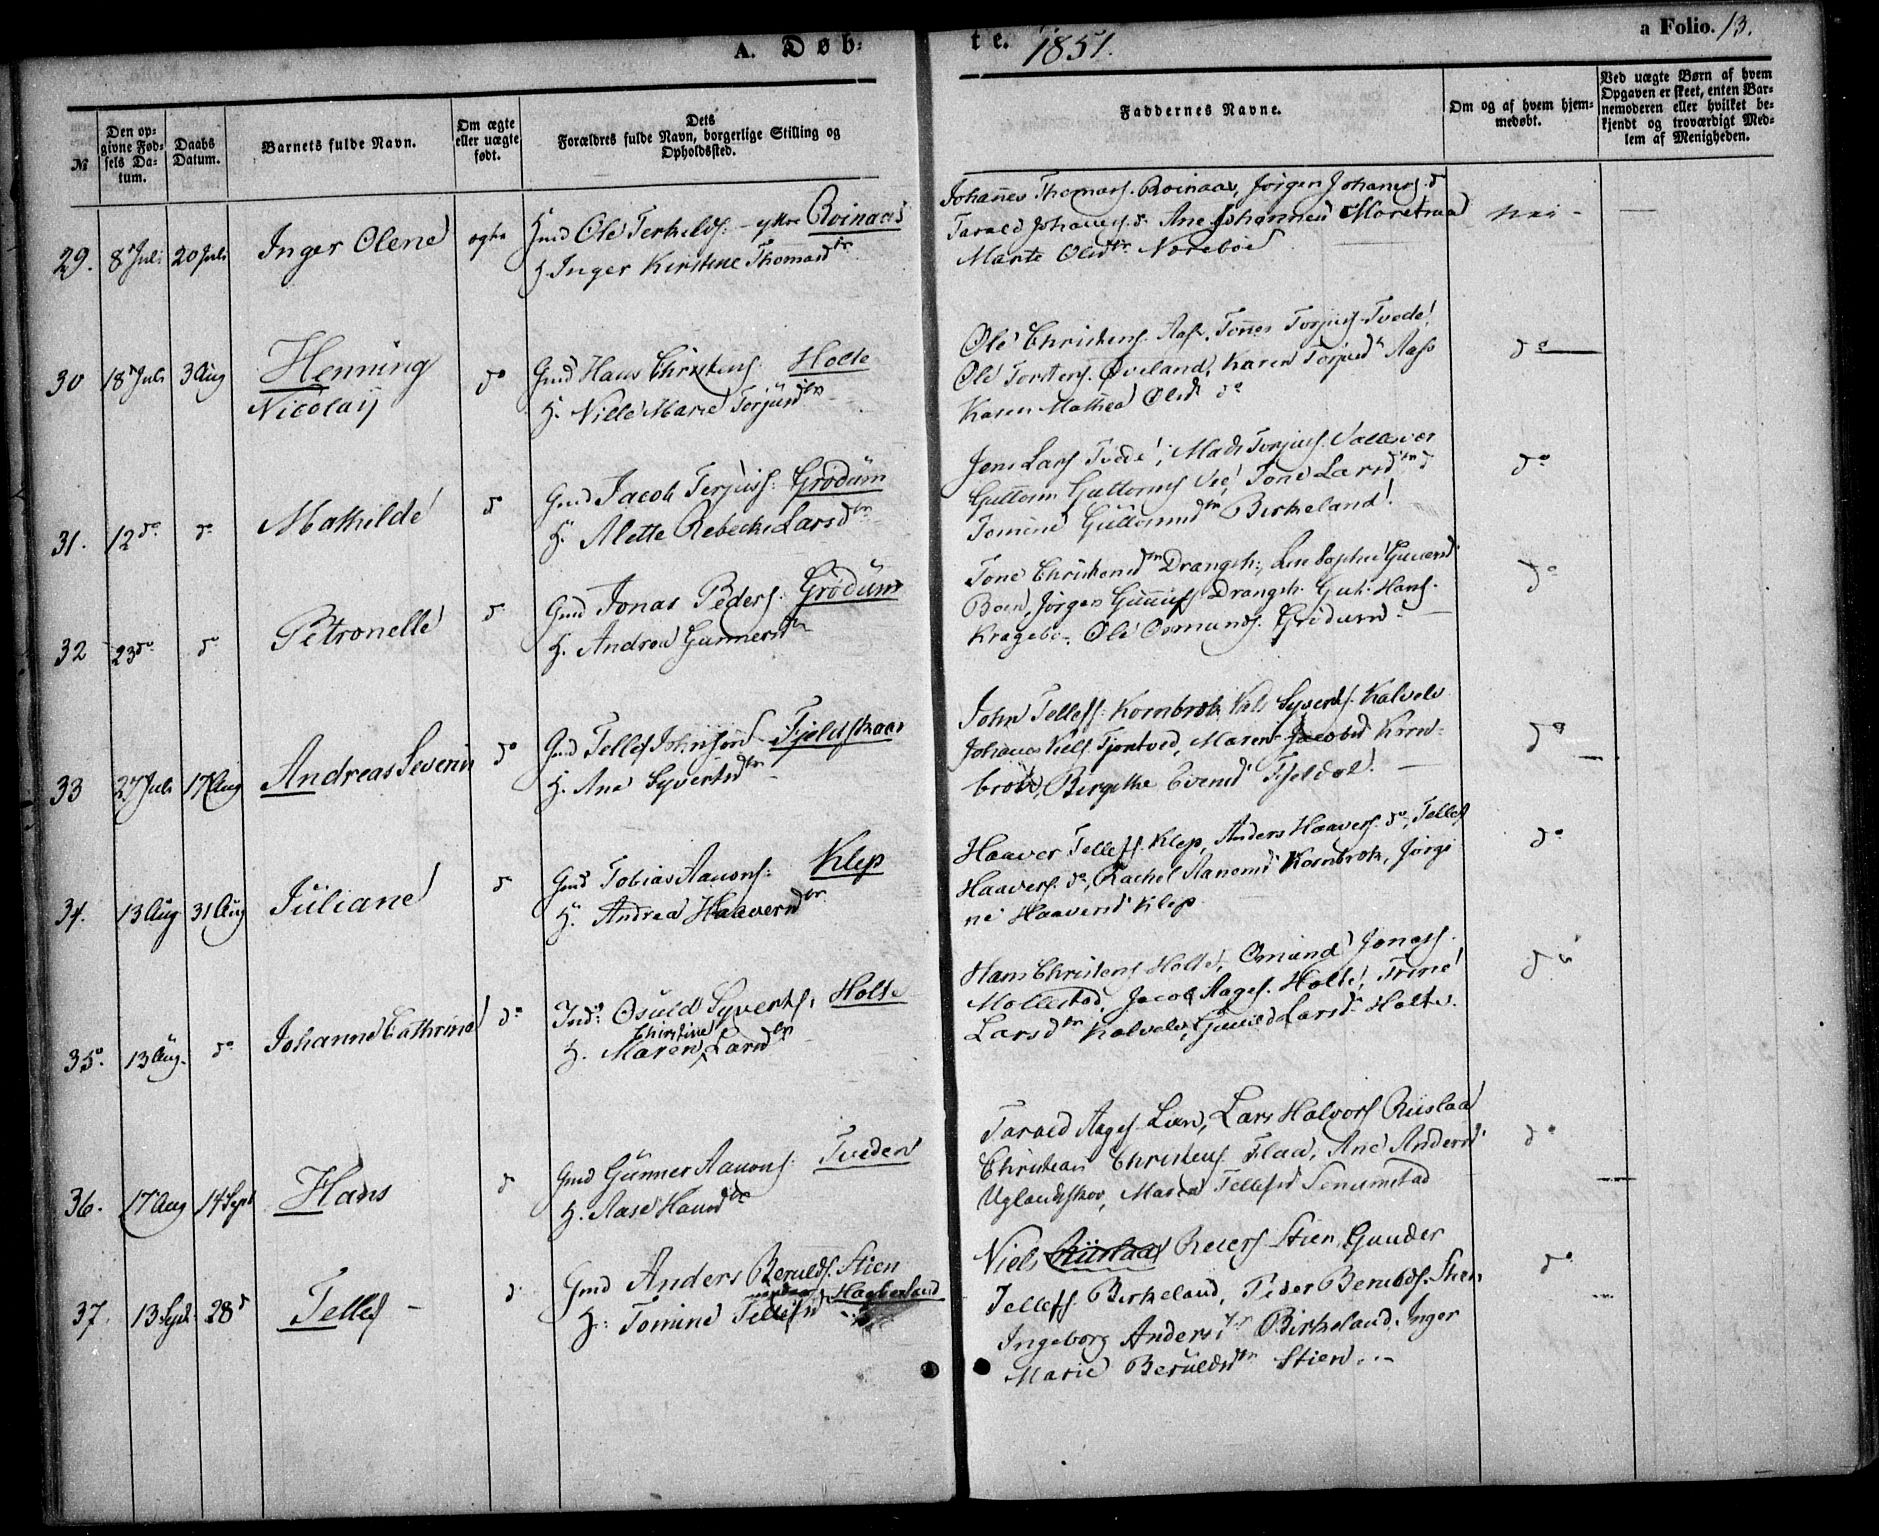 A. Døb-
te. 1851.
a Folio. 13.
№
Den op-
givne Fød-
sels Da-
tum.
Daabs
Datum.
Barnets fulde Navn.
Om ægte
eller uægte
født.
Dets
Forældres fulde Navn, borgerlige Stilling og
Opholdssted.
Faddernes Navne.
Om og af hvem hjem-
medøbt.
Ved uægte Børn af hvem
Opgaven er skeet, enten Bar-
nemoderen eller hvilket be-
kjendt og troværdigt Med-
lem af Menigheden.
29. 8 Juli 20 Juli Inger Olene ægte
Gmd Ole Terkelds. ytre Roinaas
H. Inger Kirstine Thomasdtr
Johanes Thomass. Roinaas, Jørgen Johanes. d
Tarald Johanes. do Ane Johannesd Moretraa
Marte Olsdtr Noreboe
nei —
30 18 Juli 3 Aug Henning
Nicolaij
do Gmd Hans Christens. Holte
H. Nille Marie Torjusdtr
Ole Christens. Aas, Tones Torjus. Tvede
Ole Torstens. Øveland, Karen Torjusd Aass
Karen Mathea Olsd do
do
31. 12 do do Mathilde d
Gmd Jacob Terjuss. Grødum
H. Alette Rebecka Larsdtr
Jens Lars. Tvede, Mads Torjus.
Guttorm Guttorms. Vee, Tone Larsdtr d
Tomine Guttormsdtr Birkeland
do
32 23 do do Petronelle d
Gmd Jonas Peders. Grødum
H. Andrea Gunnersdtr
Tone Christensdtr Drangsh., Sophie
Boen, Jørgen Drangsh. Hans.
Kragebo. Ole Osmunds. Grødum
do
33 27 Juli 17 Aug Andreas Severin do
Gmd Tellef Johnsøn Fjeldskaar
H. Ane Syvertsdtr
John Tellefs. Kornbrok Syverts. Kalvelv
Johanes Niels. Tjomtved, Maren Jacobsd Korn-
brok, Birgithe Evensd Fjeldal.
do
34. 13 Aug 31 Aug Juliane d
Gmd Tobias Aanons. Klep
H. Andrea Haaversdtr
Haaver Tellefs. Klep, Anders Haavers. do, Tellef
Haavers. do, Rachel Aanonsd Kornbrok, Jørgi
ne Haaversd Klep
do
35. 13 Aug. do Johanne Cathrine do
Inds. Osuld Syverts. Holte
Christine
H. Maren Larsdtr
Hans Christens. Holte, Omund Jonass.
Mollestad, Jacob Aages. Holte, Trine
Larsdtr Kalvelv, Gunild Larsd. Holte.
do
36. 17 Aug 14 Sept Hans d
Gmd Gunner Aanons. Tveden
H. Aase Hansdtr
Tarald Aages. Lien, Lars Halvors. Riislaa
Christian Christens. Flaa, Ane Andersd
Uglandsskov, Maren Tellefsd Senumstad
do
37. 13 Sept. 28 d Tellef — d
Gmd Anders Berulds. Stien
H. Tomine Tellefsd
Niels Riislaa Reiers. Stien, Gunder
Tellefs. Birkeland, Peder Berulds. Stien
Ingeborg Andersdtr Birkeland, Inger
Marie Beruldsdtr Stien.
do